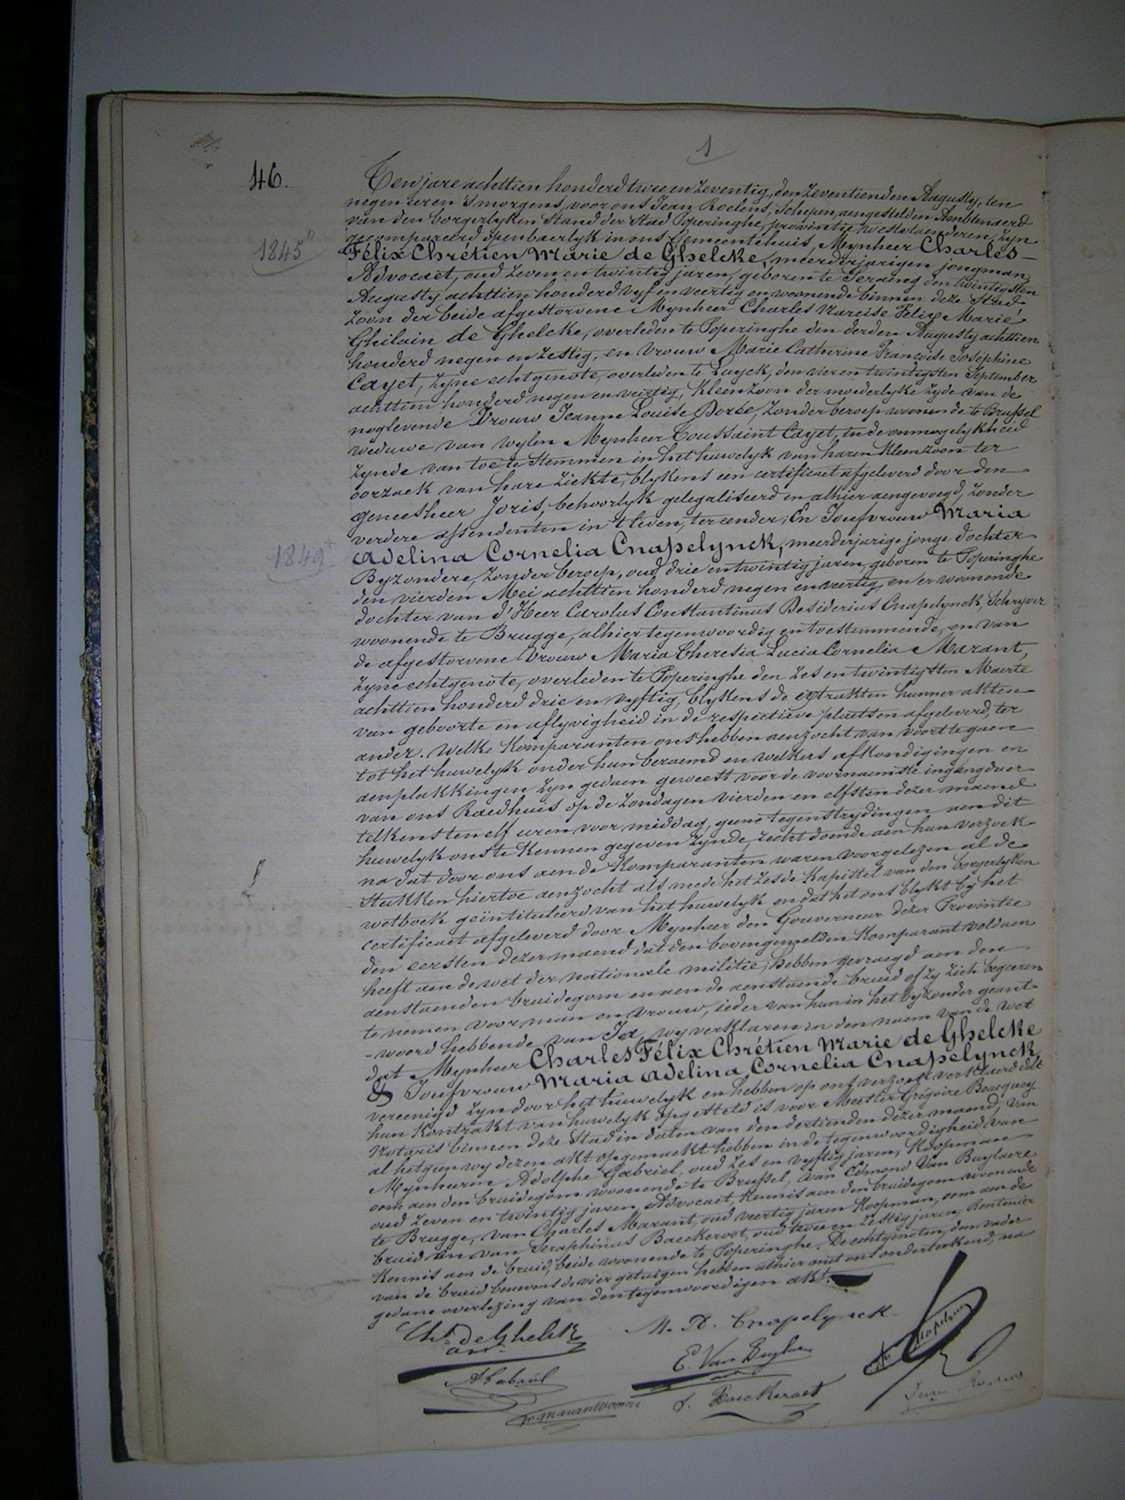 1
46.
Ten jare achttien honderd twee en zeventig, den zeventienden Augusty, ten
negen uren 's morgens, voor ons Jean Roelens, Schepen, aengestelden Ambtenaerd
van den borgerlyken Stand der Stad Poperinghe, provintie westvlaenderen, zyn
gecompareerd openbaerlyk in ons Gemeentehuis, Mynheer Charles-
1845
Félix Chrétien Marie de Ghelcke, meerderjarigen jongman,
Advocaet, oud zeven en twintig jaren, geboren te Seraing den twintigsten
Augusty achttien honderd vyf en veertig en woonende binnen deze Stad
zoon der beide afgestorvene Mynheer Charles Narcise Felix Marie
Ghilain de Ghelcke, overleden te Poperinghe den derden Augusty achttien
honderd negen en zestig, en Vrouw Marie Catherine Françoise Josephine
Cayet, zyne echtgenote, overleden te Luyck, den vier en twintigsten September
achttien honderd negen en veertig, kleenzoon der moederlyke zyde van de
noglevende Vrouw Jeanne Louise Dorée, zonder beroep woonende te Brussel
weduwe van wylen Mynheer Toussaint Cayet, in de onmogelykheid
zynde van toe te stemmen in het huwelyk van haren kleenzoon ter
oorzaek van hare ziekte, blykens een certificaet afgeleverd door den
geneesheer Joris, behoorlyk gelegaliseerd en alhier aengevoegd, zonder
verdere assendenten in 't leven, ter eender; En Joufvrouw Maria
1849
Adelina Cornelia Cnapelynck, meerderjarige jonge dochter
Byzondere, zonder beroep, oud drie en twintig jaren, geboren te Poperinghe
den vierden Mei achttien honderd negen en veertig, en er woonende
dochter van d'Heer Carolus Constantinus Desiderius Cnapelynck, Schryver
woonende te Brugge, alhier tegenwoordig en toestemmende, en van
de afgestorvene Vrouw Maria Theresia Lucia Cornelia Marant,
zyne echtgenote, overleden te Poperinghe den zes en twintigsten Maerte
achttien honderd drie en vyftig, blykens de extrakten hunner akten
van geboorte en aflyvigheid in de respectieve plaetsen afgeleverd, ter
ander. Welke Komparanten ons hebben aenzocht van voort te gaen
tot het huwelyk onder hun beraemd en welkers afkondigingen en
aenplakkingen zyn gedaen geweest voor de voornaemste ingangdeur
van ons Raedhuis op de zondagen vierden en elfsten dezer maend
telkens ten elf uren voor middag, geene tegenstrydingen aen dit
huwelyk ons te kennen gegeven zynde, recht doende aen hun verzoek
na dat door ons aen de Komparanten waren voorgelezen al de
stukken hiertoe aenzocht als mede het zesde Kapittel van den borgerlyken
wetboek geïntituleerd van het huwelyk en dat het ons blykt by het
certificaet afgeleverd door Mynheer den Gouverneur dezer Provintie
den eersten dezer maend dat den bovengemelden Komparant voldaen
heeft aen de wet der nationale militie, hebben gevraegd aen den
aenstaenden bruidegom en aen de aenstaende bruid of zy zich begeeren
te nemen voor man en vrouw, ieder van hun in het byzonder geant-
-woord hebbende van Ja, wy verklaren in den naem van de wet
dat Mynheer Charles Félix Chrétien Marie de Ghelcke
& Joufvrouw Maria Adelina Cornelia Cnapelynck,
vereenigd zyn door het huwelyk en hebben op ons verzoek verklaerd dat
hun Kontrakt van huwelyk opgesteld is voor Meester Grégoire
Notaris binnen deze Stad in daten van den dertienden dezer maend, van
al hetgeen wy dezen akt opgemaekt hebben in de tegenwoordigheid van
Mynheeren Adolphe Gabriel, oud zes en vyftig jaren, Koopman
oom aen den bruidegom woonende te Brussel, van Edmond Van Buylaere
oud zeven en twintig jaren, Advocaet, kennis aen den bruidegom woonende
te Brugge, van Charles Marant, oud veertig jaren Koopman, oom aen de
bruid en van Seraphinus Baeckeroot, oud twee en zestig jaren Rentenier
kennis aen de bruid, beide woonende te Poperinghe. De echtgenoten, den vader
van de bruid benevens de vier getuigen hebben alhier met ons onderteekend, na
gedane overlezing van den tegenwoordigen akt.
Ch. de Ghelcke
av.
M. A. Cnapelynck
A Gabriel
E. Van Buyl
S. Baeckeroot
Jean Roelens